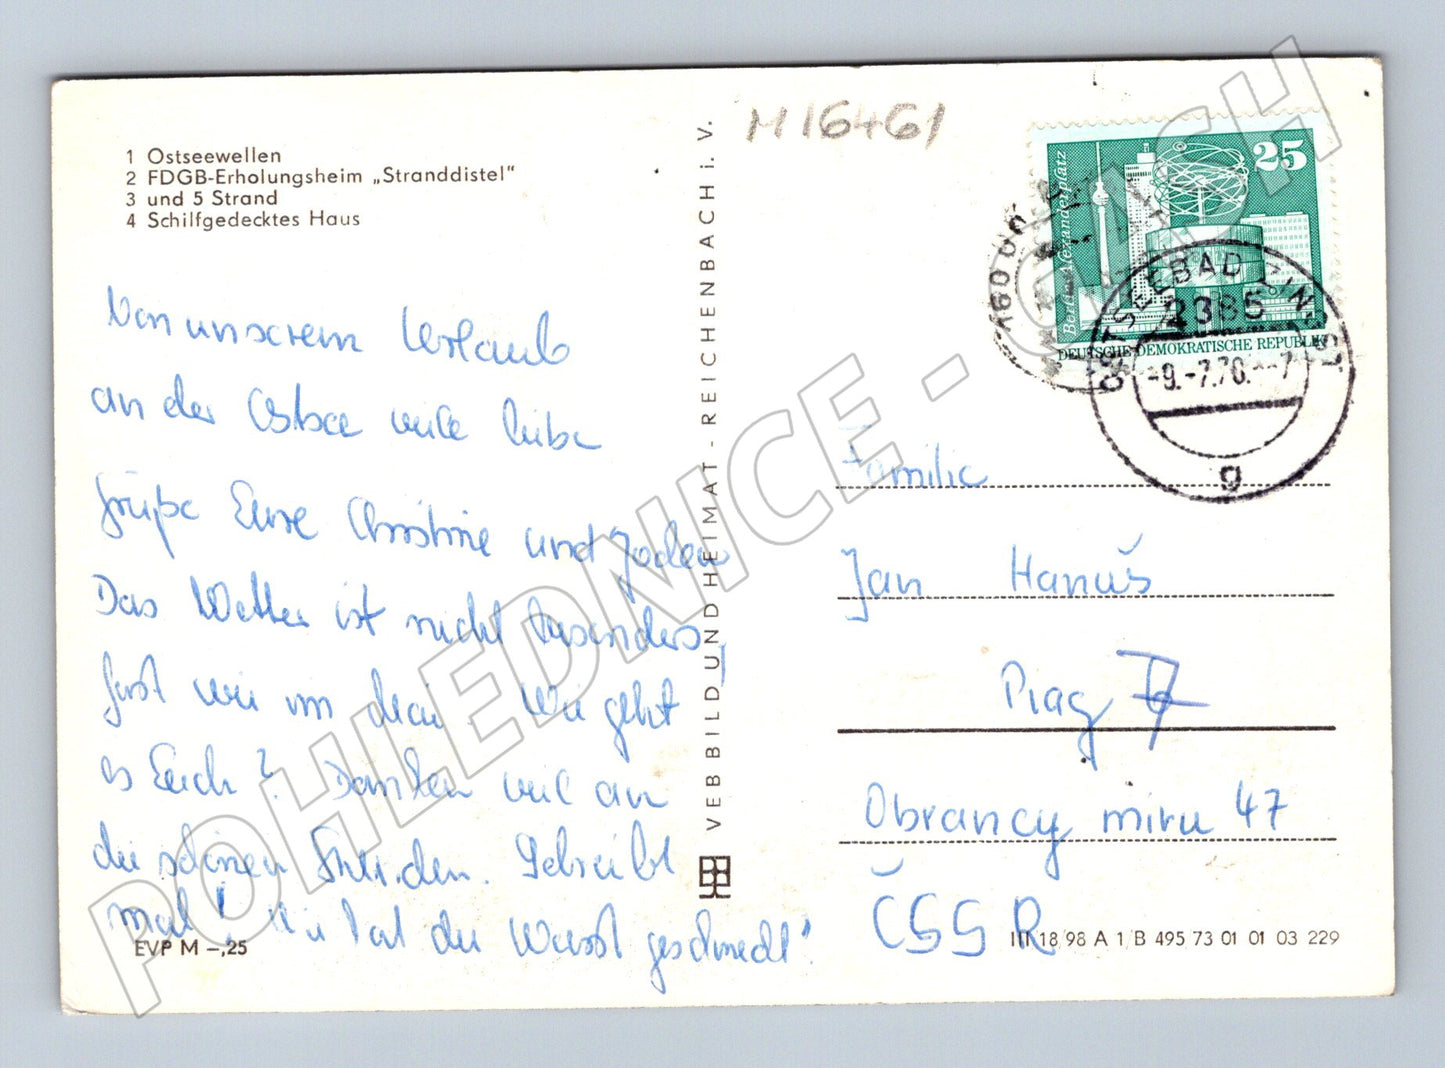 M 16461
1 Ostseewellen
2 FDGB-Erholungsheim „Stranddistel"
3 und 5 Strand
4 Schilfgedecktes Haus
Von unserem Urlaub
an der Ostsee viele liebe
Grüße Eure Christine und
Das Wetter ist nicht besonders,
fast wie im Mai. Wie geht
es Euch? Denken viel an
die schönen Stunden. Schreibt
mal! Wie hat die Wurst geschmeckt?
EVP M –,25
VEB BILD UND HEIMAT - REICHENBACH i. V.
25
Berlin-Alexanderplatz
DEUTSCHE DEMOKRATISCHE REPUBLIK
OSTSEEBAD ZINGST
2386
-9.-7.76.--7
g
Familie
Jan Hanuš
Prag 7
Obrancy miru 47
ČSSR
III 18/98 A 1/B 495 73 01 01 03 229
POHLEDNICE -